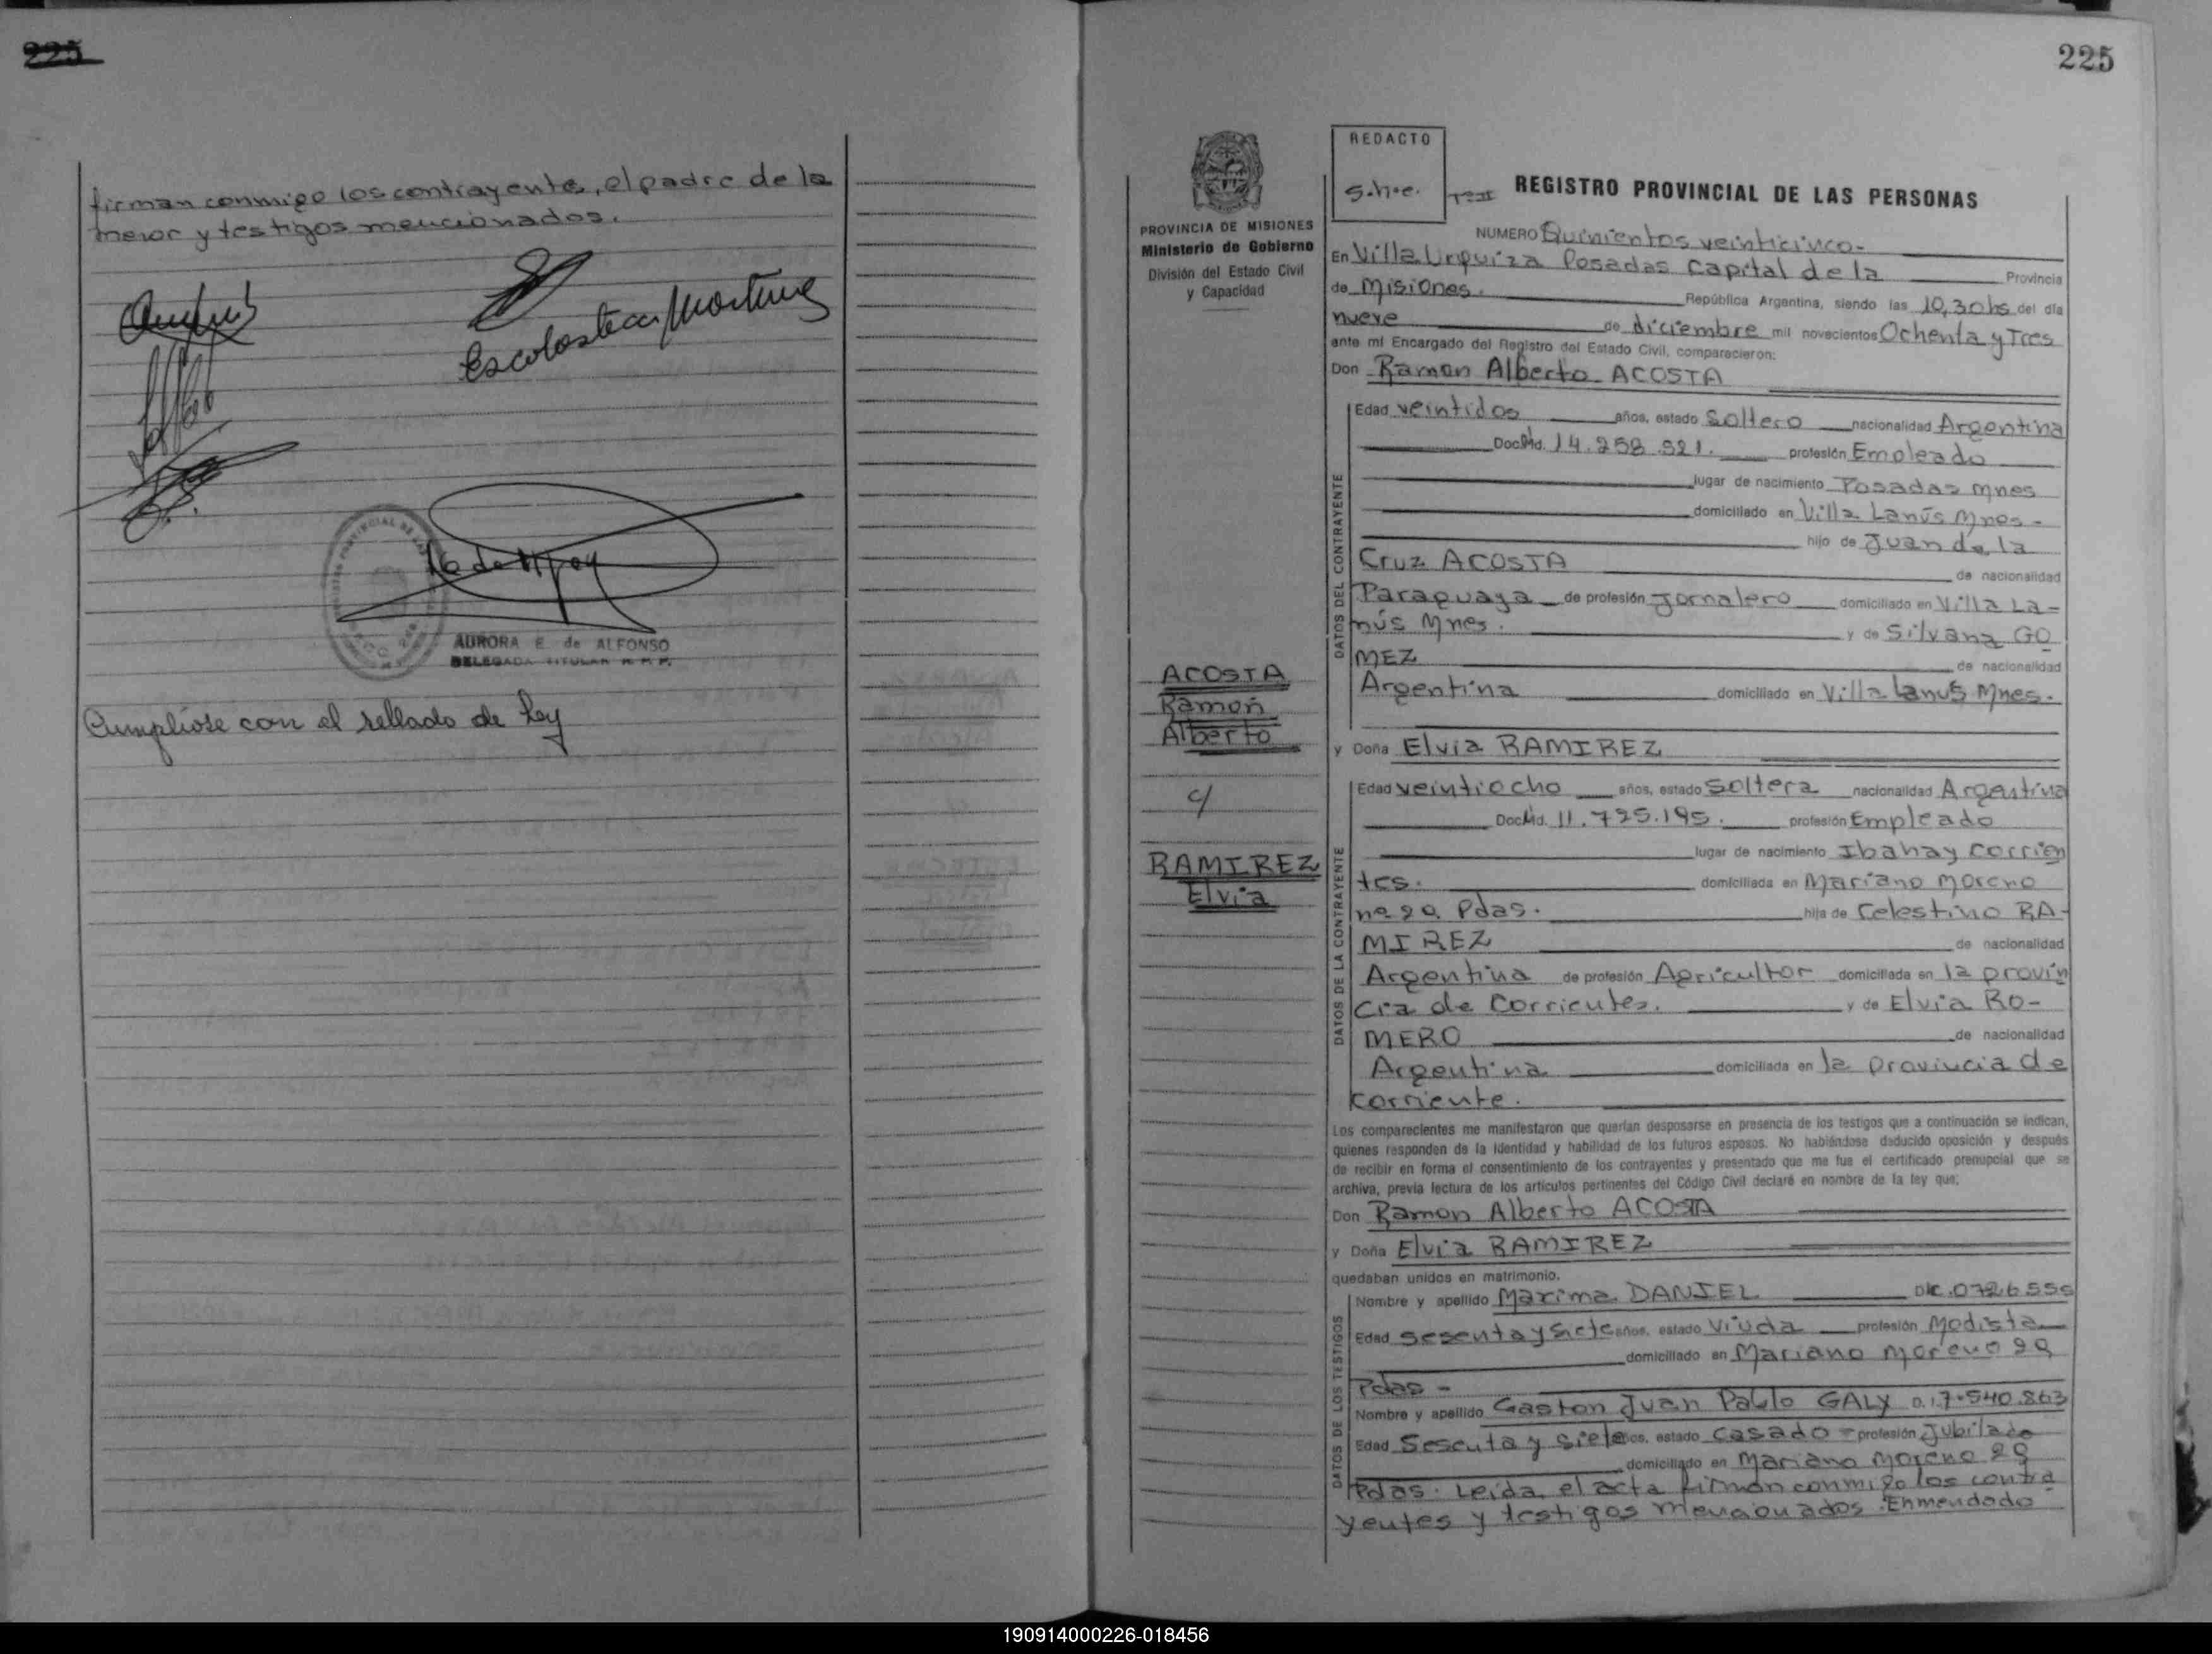 225
firman conmigo los contrayentes, el padre de la
menor y testigos mencionados.
Escolastica Martinez
AURORA E. de ALFONSO
DELEGADA TITULAR R. P. P.
Cumpliose con el sellado de Ley
225
REDACTO
S.h.e.
Tº II
REGISTRO PROVINCIAL DE LAS PERSONAS
PROVINCIA DE MISIONES
Ministerio de Gobierno
División del Estado Civil
y Capacidad
NUMERO Quinientos veinticinco-
En Villa Urquiza Posadas Capital de la Provincia
de Misiones. República Argentina, siendo las 10,30 hs del día
nueve de diciembre mil novecientos Ochenta y Tres
ante mí Encargado del Registro del Estado Civil, comparecieron:
Don Ramon Alberto ACOSTA
DATOS DEL CONTRAYENTE
Edad veintidos años, estado Soltero nacionalidad Argentina
Doc. Nd. 14.258.521. profesión Empleado
lugar de nacimiento Posadas Mnes
domiciliado en Villa Lanús Mnes-
hijo de Juan de la
Cruz ACOSTA de nacionalidad
Paraguaya de profesión Jornalero domiciliado en Villa La-
nús Mnes. y de Silvana GO
MEZ de nacionalidad
Argentina domiciliado en Villa Lanus Mnes.
ACOSTA
Ramón
Alberto
c/
RAMIREZ
Elvia
y Doña Elvia RAMIREZ
DATOS DE LA CONTRAYENTE
Edad veintiocho años, estado Soltera nacionalidad Argentina
Doc. Nd. 11.725.195. profesión Empleado
lugar de nacimiento Ibahay Corrien
tes. domiciliada en Mariano Moreno
nº 29 Pdas. hija de Celestino RA-
MIREZ de nacionalidad
Argentina de profesión Agricultor domiciliada en la provin
cia de Corrientes. y de Elvia RO-
MERO de nacionalidad
Argentina domiciliada en la provincia de
Corriente.
Los comparecientes me manifestaron que querían desposarse en presencia de los testigos que a continuación se indican,
quienes responden de la identidad y habilidad de los futuros esposos. No habiéndose deducido oposición y después
de recibir en forma el consentimiento de los contrayentes y presentado que me fue el certificado prenupcial que se
archiva, previa lectura de los artículos pertinentes del Código Civil declaré en nombre de la ley que:
Don Ramon Alberto ACOSTA
y Doña Elvia RAMIREZ
quedaban unidos en matrimonio.
DATOS DE LOS TESTIGOS
Nombre y apellido Maxima DANIEL
Edad sesenta y siete años, estado Viuda profesión Modista
domiciliado en Mariano Moreno 29
Pdas-
Nombre y apellido Gaston Juan Pablo GALY D.I. 7.540.863
Edad Sesenta y siete años, estado Casado- profesión Jubilado
domiciliado en Mariano Moreno 29
Pdas. Leida el acta firman conmigo los contra
yentes y testigos mencionados. Enmendado
190914000226-018456